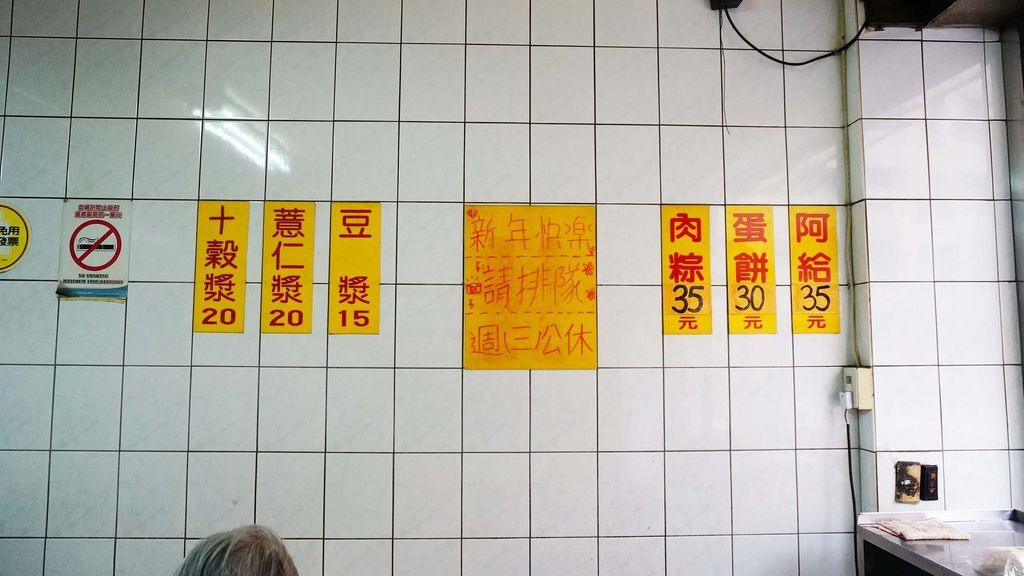 免用
發票
NO SMOKING
十穀漿
20
薏仁漿
20
豆漿
15
新年快樂
請排隊
週三公休
肉粽
35
元
蛋餅
30
元
阿給
35
元